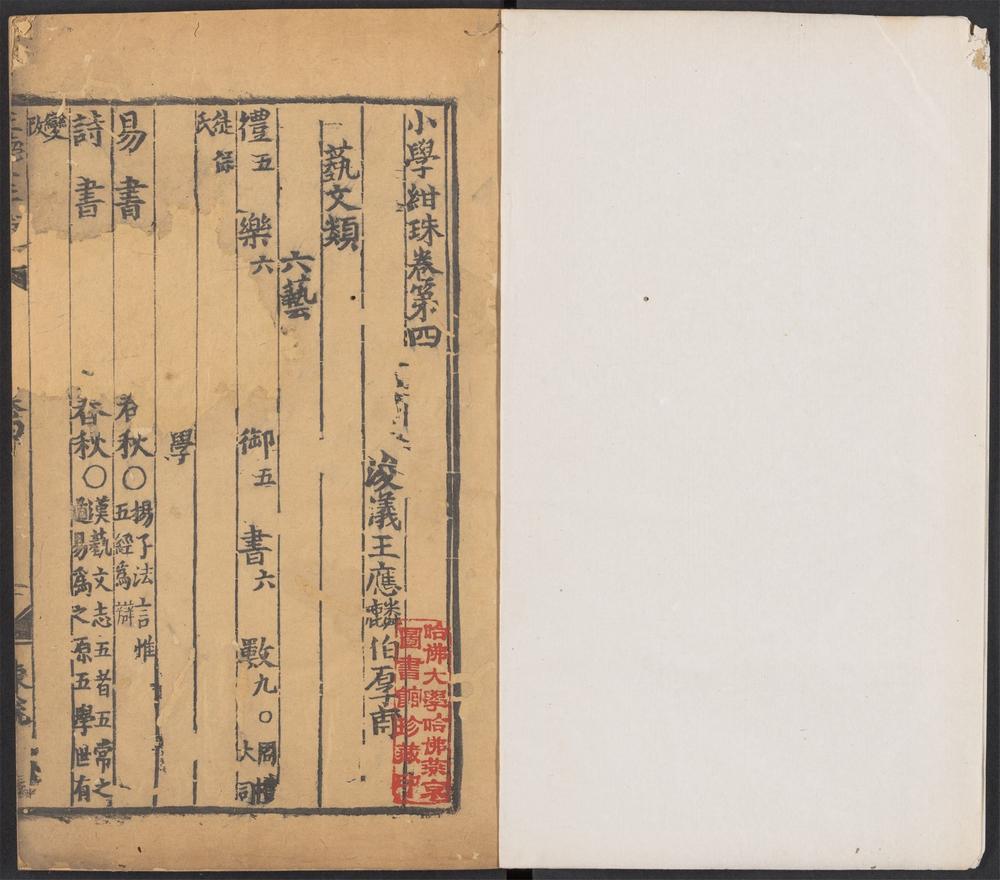 小學紺珠卷第四
浚儀王應麟伯厚甫
藝文類
六藝
禮五 樂六 御五 書六 數九○周禮大司
徒保氏
學
易 書 春秋○揚子法言惟五經為辯
詩 書 春秋○漢藝文志五者五常之道易為之原五學世有
變改
哈佛大學哈佛燕京
圖書館珍藏印